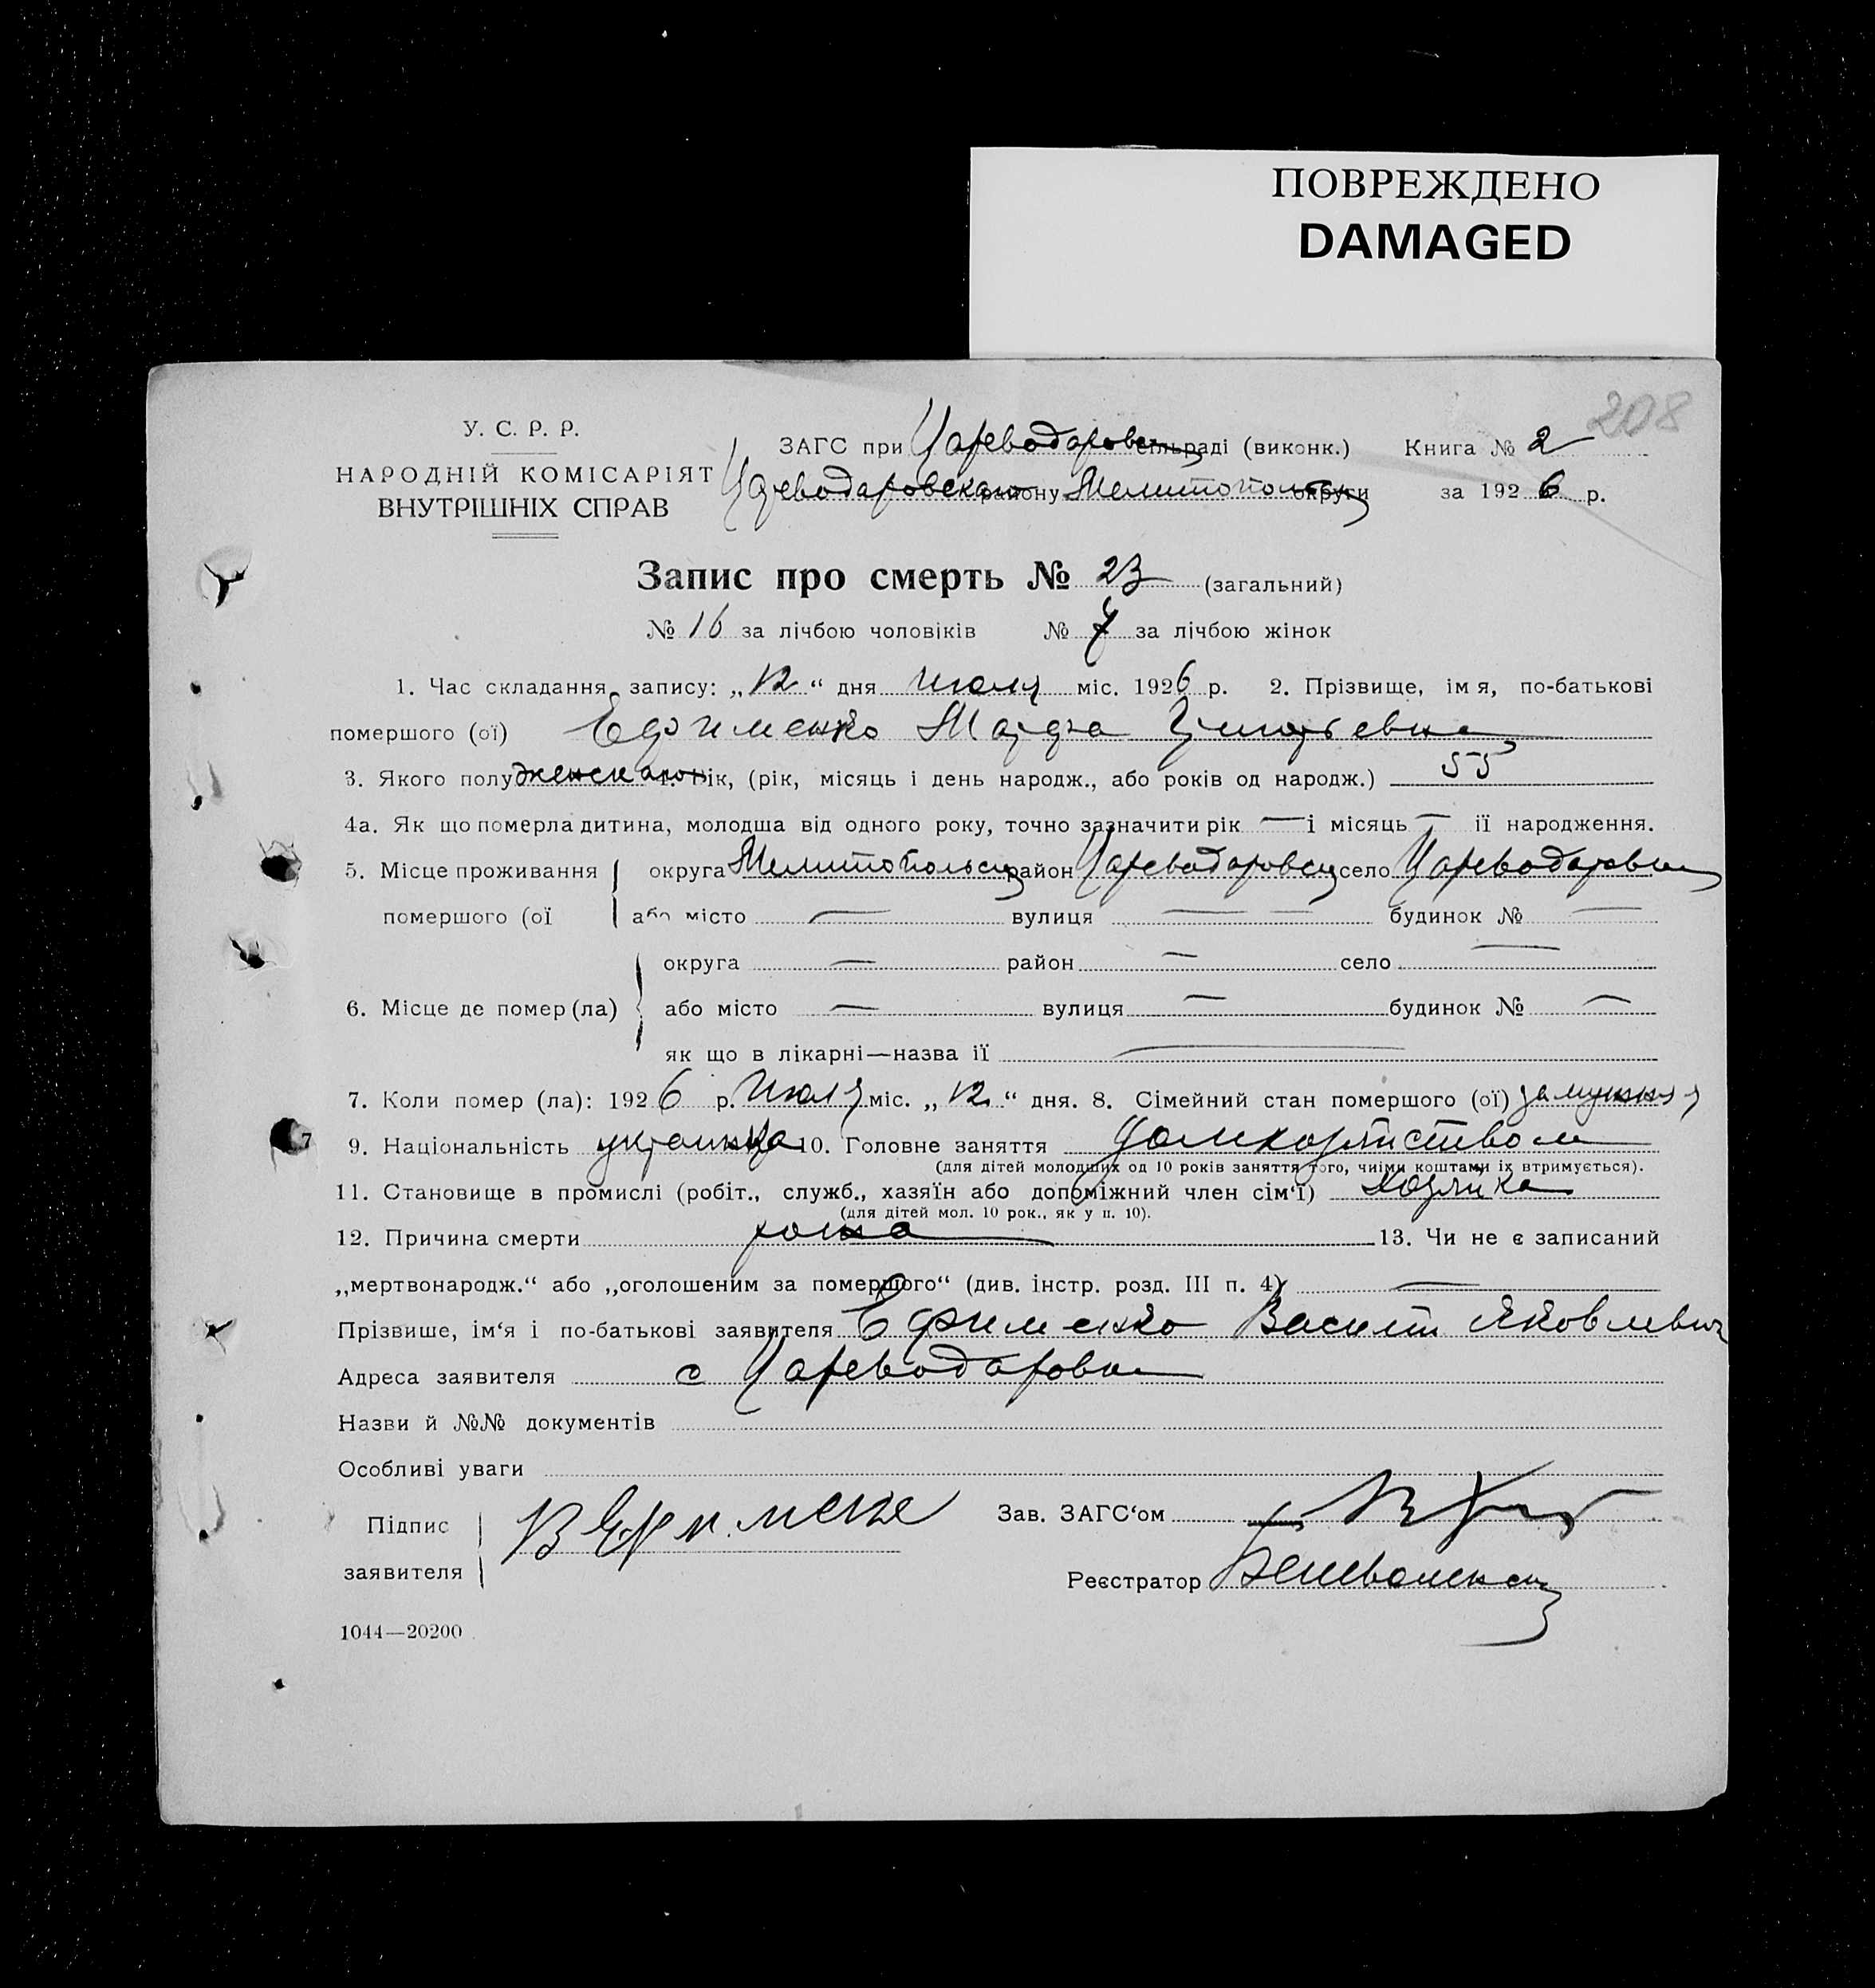 ПОВРЕЖДЕНО
DAMAGED
208
У. С. Р. Р.
НАРОДНІЙ КОМІСАРІЯТ
ВНУТРІШНІХ СПРАВ
ЗАГС при Цареводаровск сільраді (виконк.) Книга № 2
Цареводаровскаго району Мелитопольск округи за 1926 р.
Запис про смерть № 23 (загальний)
№ 16 за лічбою чоловіків № 7 за лічбою жінок
1. Час складання запису: „12“ дня июля міс. 1926 р. 2. Прізвище, імя, по-батькові
помершого (ої) Ефименко Марфа Григорьевна
3. Якого полу женскаго 4. Вік, (рік, місяць і день народж., або років од народж.) 55
4а. Як що померла дитина, молодша від одного року, точно зазначити рік — і місяць — її народження.
5. Місце проживання округа Мелитопольск район Цареводаровск село Цареводаровка
помершого (ої або місто — вулиця — — будинок № —
округа — район — село —
6. Місце де помер (ла) або місто — вулиця — будинок № —
як що в лікарні—назва її —
7. Коли помер (ла): 1926 р. Июля міс. „12“ дня. 8. Сімейний стан помершого (ої) замужняя
9. Національність украинка 10. Головне заняття домхозяйством
(для дітей молодших од 10 років заняття того, чиїми коштами їх втримується).
11. Становище в промислі (робіт., служб., хазяїн або допоміжний член сім‘ї) хозяйка
(для дітей мол. 10 рок., як у п. 10).
12. Причина смерти рожа 13. Чи не є записаний
„мертвонародж.“ або „оголошеним за помершого“ (див. інстр. розд. III п. 4) —
Прізвише, ім‘я і по-батькові заявителя Ефименко Василий Яковлевич
Адреса заявителя с Цареводаровка
Назви й №№ документів
Особливі уваги
Підпис В Ефименко Зав. ЗАГС‘ом
заявителя Реєстратор
1044—20200